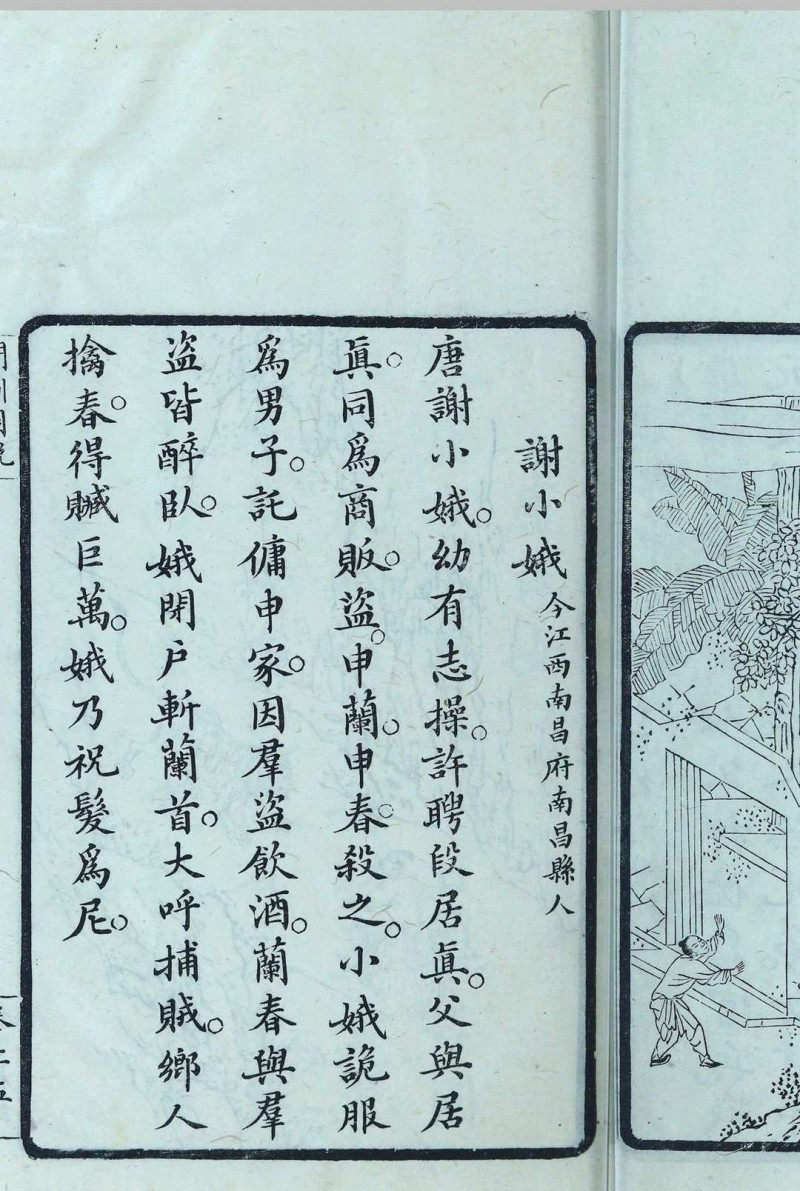 謝小娥今江西南昌府南昌縣人
唐謝小娥。幼有志操。許聘段居眞。父與居
眞。同爲商販。盜。申蘭。申春。殺之。小娥詭服
爲男子。託傭申家。因羣盜飲酒。蘭春與羣
盜皆醉臥。娥閉戶斬蘭首。大呼捕賊。鄉人
擒春。得贓巨萬。娥乃祝髮爲尼。